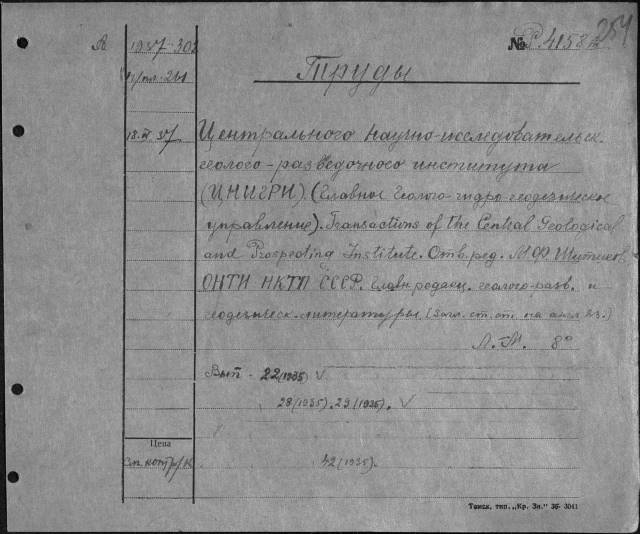 А 1937-302 № Р. 4158 254
Труды
18.IV.37 Центрального Научно-исследовательск.
геолого-разведочного института
(ЦНИГРИ). (Главное Геолого-гидро-геодезическое
управление). Transactions of the Central Geological
and Prospecting Institute. Отв. ред. М.Ф. Шитиков.
ОНТИ НКТП СССР. Главн. редакц. геолого-разв. и
геодезическ. литературы. (Загл. ст. ст. на англ. яз.)
Л.-М. 8°
Вып - 22(1935) V
28(1935). 29(1935). V
Цена
См. контр/к 42(1935).
Томск, тип. „Кр. Зн." 36- 3041